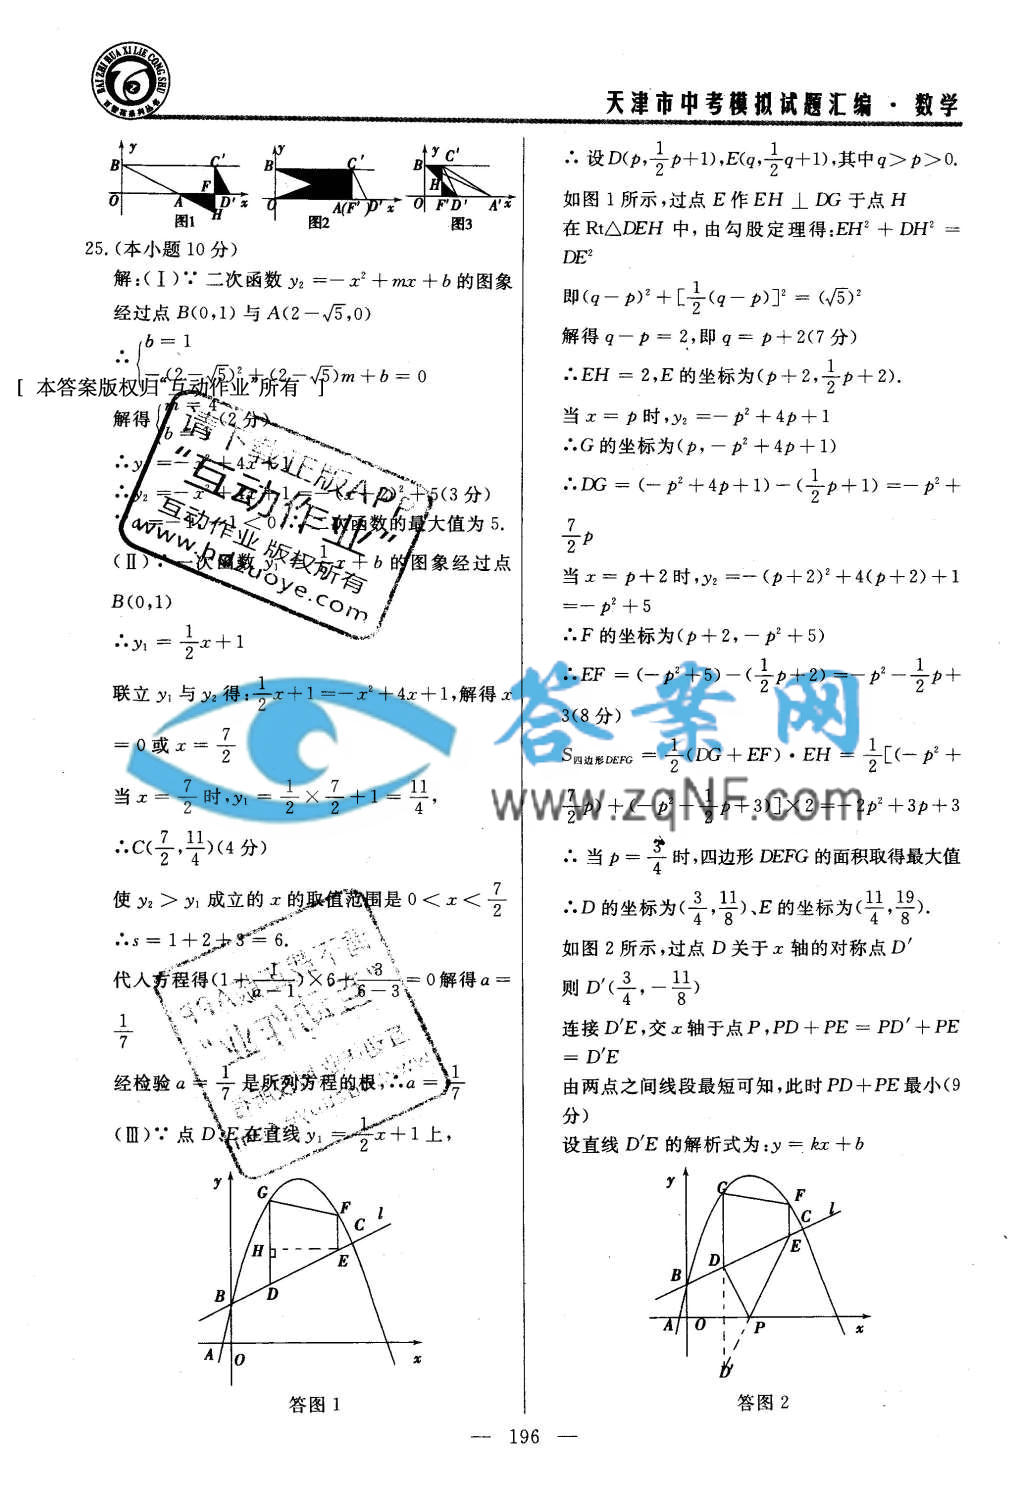 BAI ZHI HUA XI LIE CONG SHU
天津市中考模拟试题汇编·数学
y B C′ F O A D′ x H 图1
y B C′ O A(F′) D′ x 图2
y C′ B H O F′ D′ A′ x 图3
25.(本小题10分)
解:(Ⅰ)∵二次函数 y₂=−x²+mx+b 的图象
经过点 B(0,1) 与 A(2−√5,0)
∴ { b=1
−(2−√5)²+(2−√5)m+b=0
[ 本答案版权归“互动作业”所有 ]
解得 { m=4 b=1 (2分)
∴y₂=−x²+4x+1
∴y₂=−x²+4x+1=−(x−2)²+5(3分)
∵a=−1,−1<0∴二次函数的最大值为5.
(Ⅱ)∵一次函数 y₁=1/2x+b 的图象经过点
B(0,1)
∴y₁=1/2x+1
联立 y₁ 与 y₂ 得:1/2x+1=−x²+4x+1,解得 x
=0或 x=7/2
当 x=7/2时,y₁=1/2×7/2+1=11/4,
∴C(7/2,11/4)(4分)
使 y₂>y₁ 成立的 x 的取值范围是 0<x<7/2
∴s=1+2+3=6.
代入方程得(1+1/(a−1))×6+3/(6−3)=0解得 a=
1/7
经检验 a=1/7是所列方程的根,∴a=1/7
(Ⅲ)∵点 D、E在直线 y₁=1/2x+1上,
y G F C l H E B D A O x
答图1
∴设D(p,1/2p+1),E(q,1/2q+1),其中q>p>0.
如图1所示,过点 E 作 EH⊥DG 于点 H
在 Rt△DEH 中,由勾股定理得:EH²+DH²=
DE²
即(q−p)²+[1/2(q−p)]²=(√5)²
解得 q−p=2,即 q=p+2(7分)
∴EH=2,E的坐标为(p+2,1/2p+2).
当 x=p时,y₂=−p²+4p+1
∴G的坐标为(p,−p²+4p+1)
∴DG=(−p²+4p+1)−(1/2p+1)=−p²+
7/2p
当 x=p+2时,y₂=−(p+2)²+4(p+2)+1
=−p²+5
∴F的坐标为(p+2,−p²+5)
∴EF=(−p²+5)−(1/2p+2)=−p²−1/2p+
3(8分)
S四边形DEFG=1/2(DG+EF)·EH=1/2[(−p²+
7/2p)+(−p²−1/2p+3)]×2=−2p²+3p+3
∴当 p=3/4时,四边形DEFG的面积取得最大值
∴D的坐标为(3/4,11/8)、E的坐标为(11/4,19/8).
如图2所示,过点 D关于 x 轴的对称点 D′
则 D′(3/4,−11/8)
连接 D′E,交 x 轴于点 P,PD+PE=PD′+PE
=D′E
由两点之间线段最短可知,此时PD+PE最小(9
分)
设直线 D′E 的解析式为:y=kx+b
y G F C l D E B A O P x D′
答图2
请下载正版APP
“互动作业”
互动作业 版权所有
www.hdzuoye.com
答案网
www.zqNF.com
— 196 —